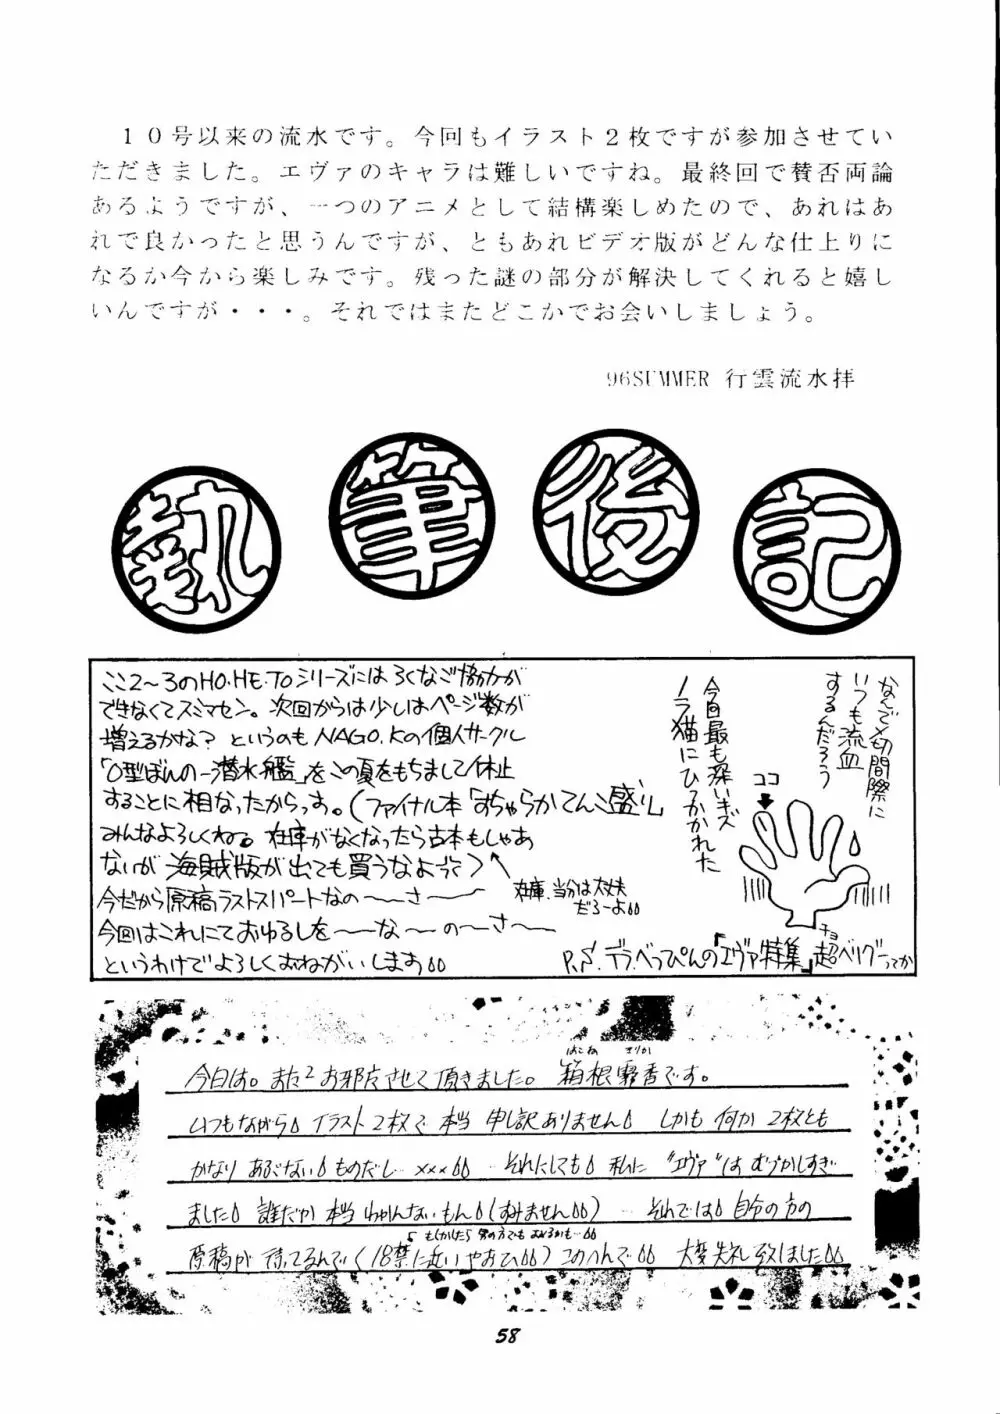 10号以来の流水です。今回もイラスト2枚ですが参加させてい
ただきました。エヴァのキャラは難しいですね。最終回で賛否両論
あるようですが、一つのアニメとして結構楽しめたので、あれはあ
れで良かったと思うんですが、ともあれビデオ版がどんな仕上りに
なるか今から楽しみです。残った謎の部分が解決してくれると嬉し
いんですが・・・。それではまたどこかでお会いしましょう。
96SUMMER 行雲流水拝
執筆後記
ここ2~3のHO.HE.TOシリーズにはろくなご協力が
できなくてスミマセン。次回からは少しはページ数が
増えるかな? というのも NAGO.Kの個人サークル
「O型ぼんの一潜水艦」をこの夏をもちまして休止
することに相なったからっす。(ファイナル本「おちゃらかてんこ盛り」
みんなよろしくね。在庫がなくなったら古本もしゃあ
ないが 海賊版が出ても買うなよ)
在庫、当分は大丈夫
だろーよ
今だから原稿ラストスパートなの〜〜さ〜〜
今回はこれにておゆるしを〜〜な〜の〜さ〜
というわけでよろしくおねがいします
なんで〆切間際に
いつも流血
するんだろう
ココ
今回最も深いキズ
ノラ猫にひっかかれた
P.S. デラべっぴんの「エヴァ特集」超ベリグーってか
チョ
はこね きりか
今日は。また2お邪魔させて頂きました。 箱根霧香です。
いつもながら イラスト2枚で 本当 申し訳ありません しかも 何か 2枚とも
かなり あぶない ものだし… xxx …それにしても 私に "エヴァ"は むづかしすぎ
ました 誰だか 本当 わかんないもん (すみません) …それでは 自分の方の
もしかしたら 男の方でも
原稿が 待ってるんで (18禁に近いやおひ) このへんで 大変失礼致しました
58